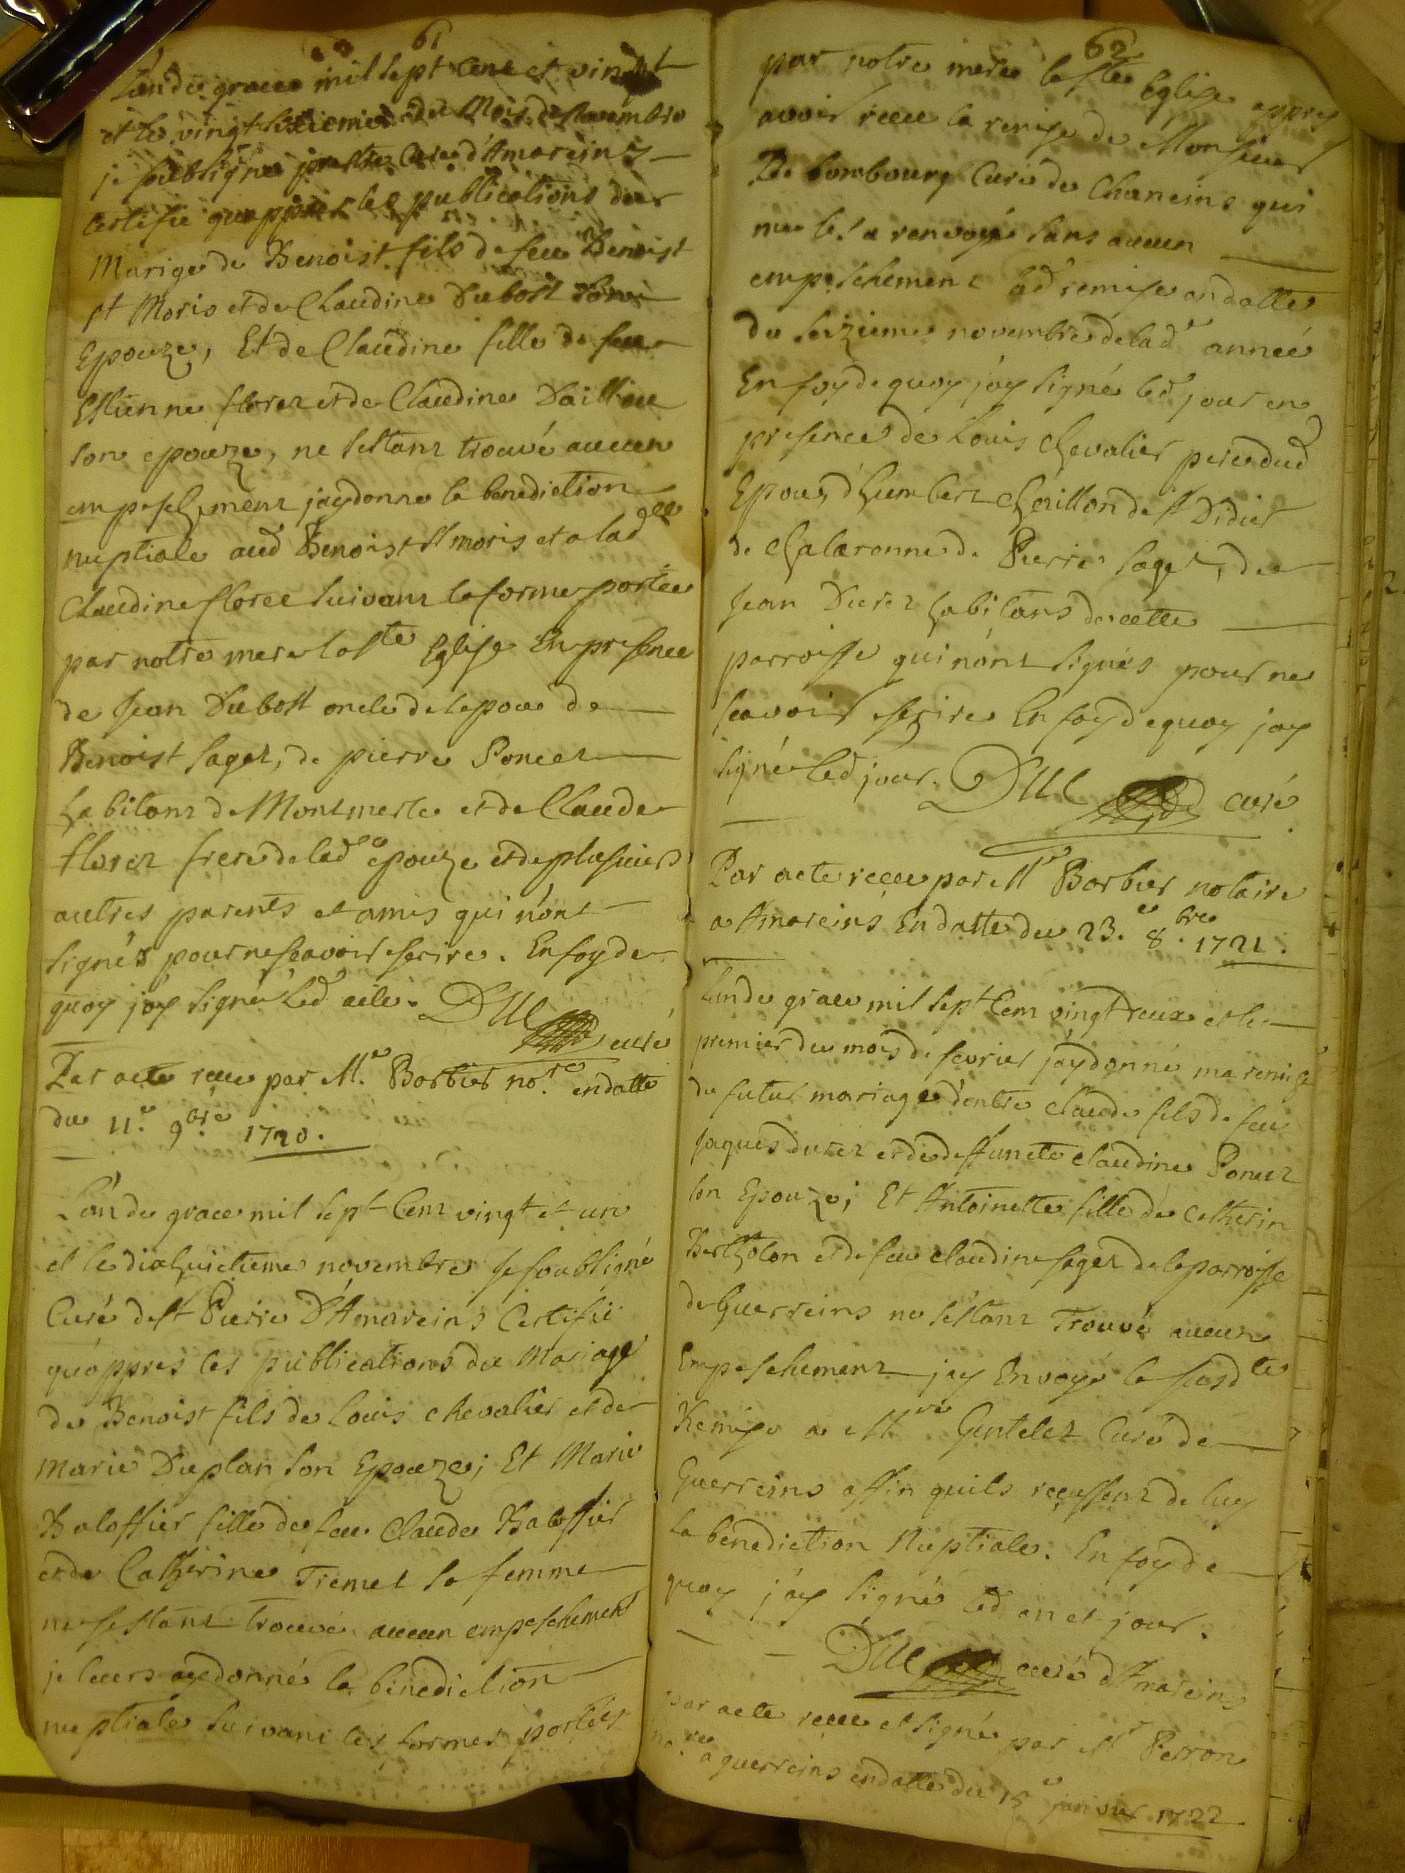 61
L'an de grace mil sept cent et vingt
et le vingt sixieme du Mois de Novembre
je soubsigné prestre Curé d'Amareins
certifie qu'appres les publications du
Mariage de Benoist fils de feu Benoist
st Moris et de Claudine Dubost son
Epouze, Et de Claudine fille de feu
Estienne floret et de Claudine
son epouze, ne sestant trouvé aucun
empeschement jay donné la benediction
nuptiale aud Benoist st moris et a lad
Claudine floret suivant la forme portée
par notre mere la ste Eglise En presence
de Jean Dubost oncle de lepoux de
Benoist Saget, de pierre Poncet
habitant de Montmerle et de Claude
floret frere de lad epouze et de plusieurs
autres parents et amis qui n'ont
signés pour ne scavoir escrire. En foy de
quoy jay signé led acte. curé
Par acte receu par Me Barbier nore en datte
du 11e 9bre 1720.
L'an de grace mil sept Cent vingt et un
et le dixhuictieme novembre je soubsigné
Curé de st Pierre D'Amareins Certifie
qu'appres les publications du Mariage
de Benoist fils de Louis chevalier et de
Marie Duplan son Epouze; Et Marie
Baloffier fille de feu Claude Baloffier
et de Catherine Tremet sa femme
ne sestant trouvé aucun empeschement
je leurs ay donné la benediction
nuptiale suivant les formes portées
62
par notre mere la ste Eglise appres
avoir receu la remise de Monsieur
De bombourg Curé de Chaneins qui
me la renvoyé sans aucun
empeschement lad remise en datte
du seizieme novembre de lad année
En foy de quoy jay signé led jour en
presence de Louis chevalier pere dud
Epoux, d'humbert de st Didier
de chalaronne de Pierre Saget, de
Jean Duret habitans de cette
parroisse qui n'ont signés pour ne
scavoir escrire En foy de quoy jay
signé led jour. curé
Par acte receu par Me Barbier notaire
a Amareins En datte du 23e 8bre 1721.
L'an de grace mil sept Cent vingt deux et le
premier du mois de fevrier j'ay donné ma remise
du futur mariage d'entre claude fils de feu
Jaques duret et de deffuncte claudine Poncet
son Epouze; Et Antoinette fille de Catherin
Bertholon et de feu claudine saget de la parroisse
de Guerreins ne s'estant Trouvé aucun
Empeschement jay Envoyé la susdte
Remise a Mre Gentelet Curé de
Guerreins affin quils reçussent de luy
La benediction Nuptiale. En foy de
quoy j'ay signé led an et jour.
curé d'Amareins
par acte receu et signé par Mr Perron
nore a guerreins en datte du 15e janvier 1722